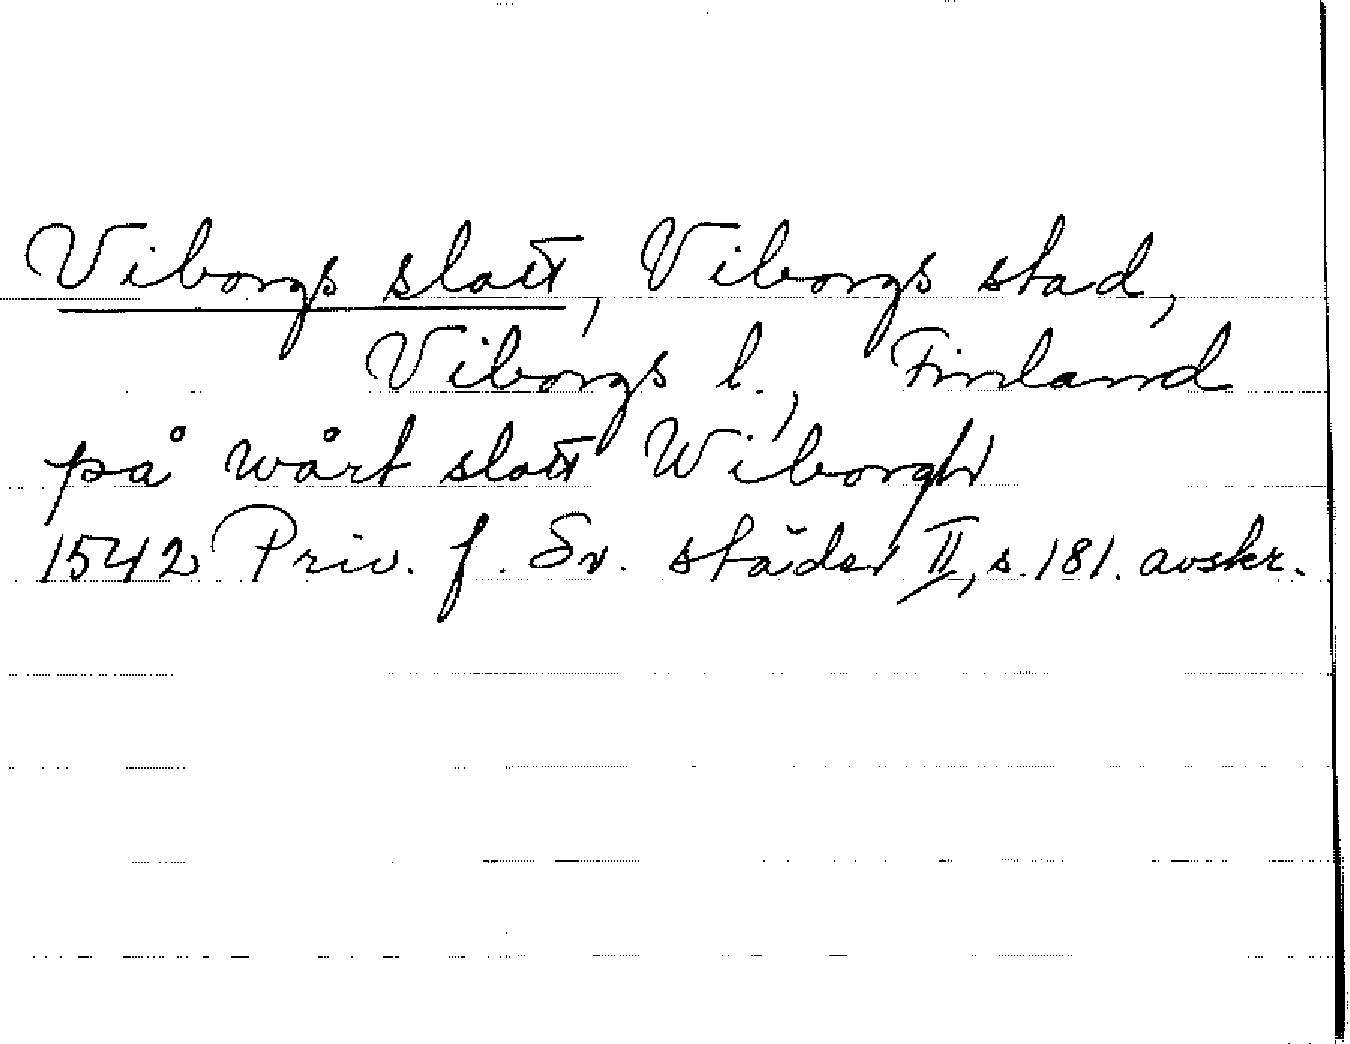 Viborgs slott, Viborgs stad,
Viborgs l., Finland
på wårt slott Wiborgh
1542 Priv. f. Sv. städer II, s. 181. avskr.